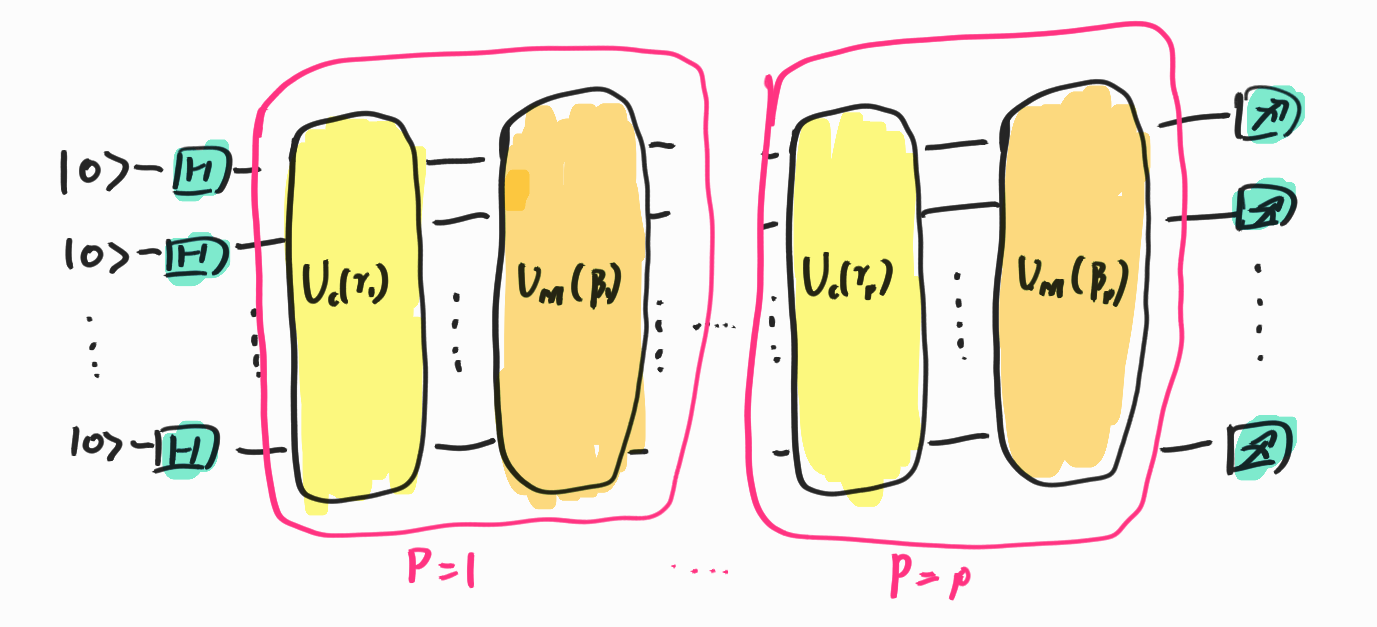 |0> H
|0> H
|0> H
U_c(γ_1)
U_M(β_1)
U_c(γ_p)
U_M(β_p)
P=1
P=p